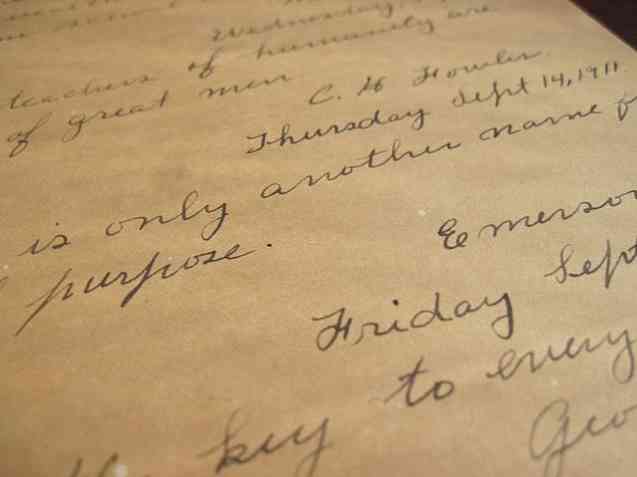 Wednesday,
teachers of humanity are
of great men
C. H Fowler.
Thursday Sept 14, 1911
is only another name f
purpose.
Emerson
Friday Sept
key to every
Geo